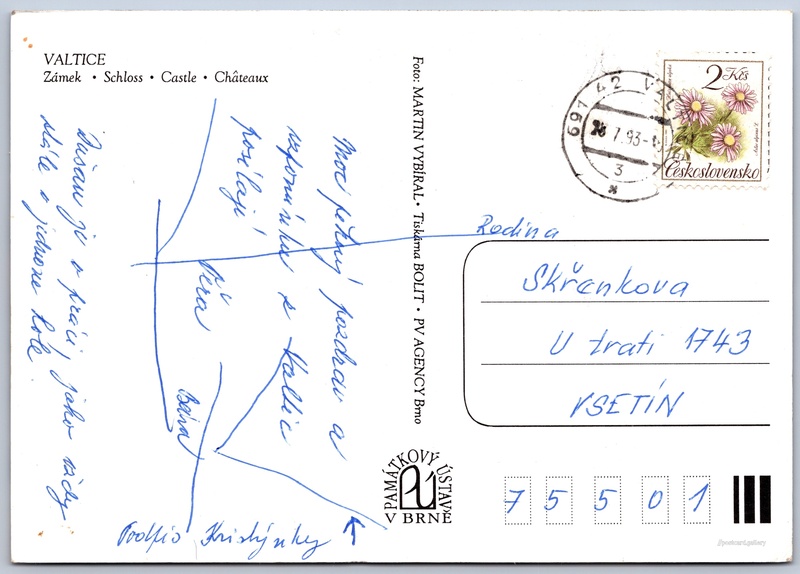 VALTICE
Zámek • Schloss • Castle • Châteaux
Moc pěkný pozdrav a
vzpomínku z Valtic
posílají
Věra
Bára
Dušan je v práci, jako vždy
stále v jednom kole.
Podpis Kristýnky
Foto: MARTIN VYBÍRAL • Tiskárna BOLIT • PV AGENCY Brno
PAMÁTKOVÝ ÚSTAV
V BRNĚ
691 42 VAL
7.93
3
2 Kčs
Československo
Rodina
Skřenkova
U trati 1743
VSETÍN
7 5 5 0 1